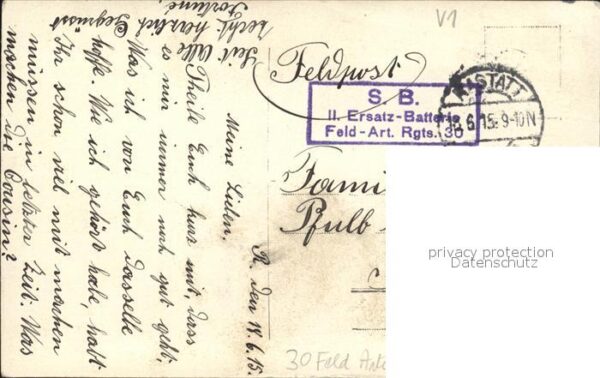 V1
Feldpost
S. B.
II. Ersatz-Batterie
Feld-Art. Rgts. 30
RASTATT
18.6.15. 9-10N
Fami
Pfulb
privacy protection
Datenschutz
30 Feld Arti
R. den 18.6.15.
Meine Lieben,
Theile Euch kurz mit, dass
es mir immer noch gut geht,
Was ich von Euch dasselbe
hoffe. Wie ich gehört habe, habt
Ihr schon viel mit machen
müssen in letzter Zeit. Was
machen die Cousin?
Seit Alle
recht herzlich
Gegrüsst